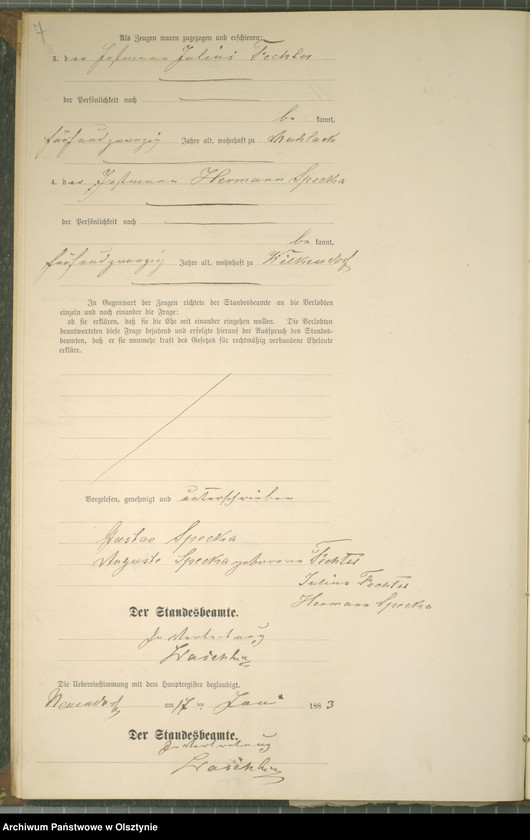 7
Als Zeugen waren zugezogen und erschienen:
3. der Instmann Julius Fechter
der Persönlichkeit nach
be kannt,
fünfundzwanzig Jahre alt, wohnhaft zu Muhlack
4. der Instmann Hermann Specka
der Persönlichkeit nach
be kannt,
fünfundzwanzig Jahre alt, wohnhaft zu Wilkendorf
In Gegenwart der Zeugen richtete der Standesbeamte an die Verlobten
einzeln und nach einander die Frage:
ob sie erklären, daß sie die Ehe mit einander eingehen wollen. Die Verlobten
beantworteten diese Frage bejahend und erfolgte hierauf der Ausspruch des Standes-
beamten, daß er sie nunmehr kraft des Gesetzes für rechtmäßig verbundene Eheleute
erkläre.
Vorgelesen, genehmigt und unterschrieben
Gustav Specka
Auguste Specka geborene Fechter
Julius Fechter
Hermann Specka
Der Standesbeamte.
In Vertretung
Die Uebereinstimmung mit dem Hauptregister beglaubigt.
am 17 ten 1883
Der Standesbeamte.
In Vertretung
Archiwum Państwowe w Olsztynie